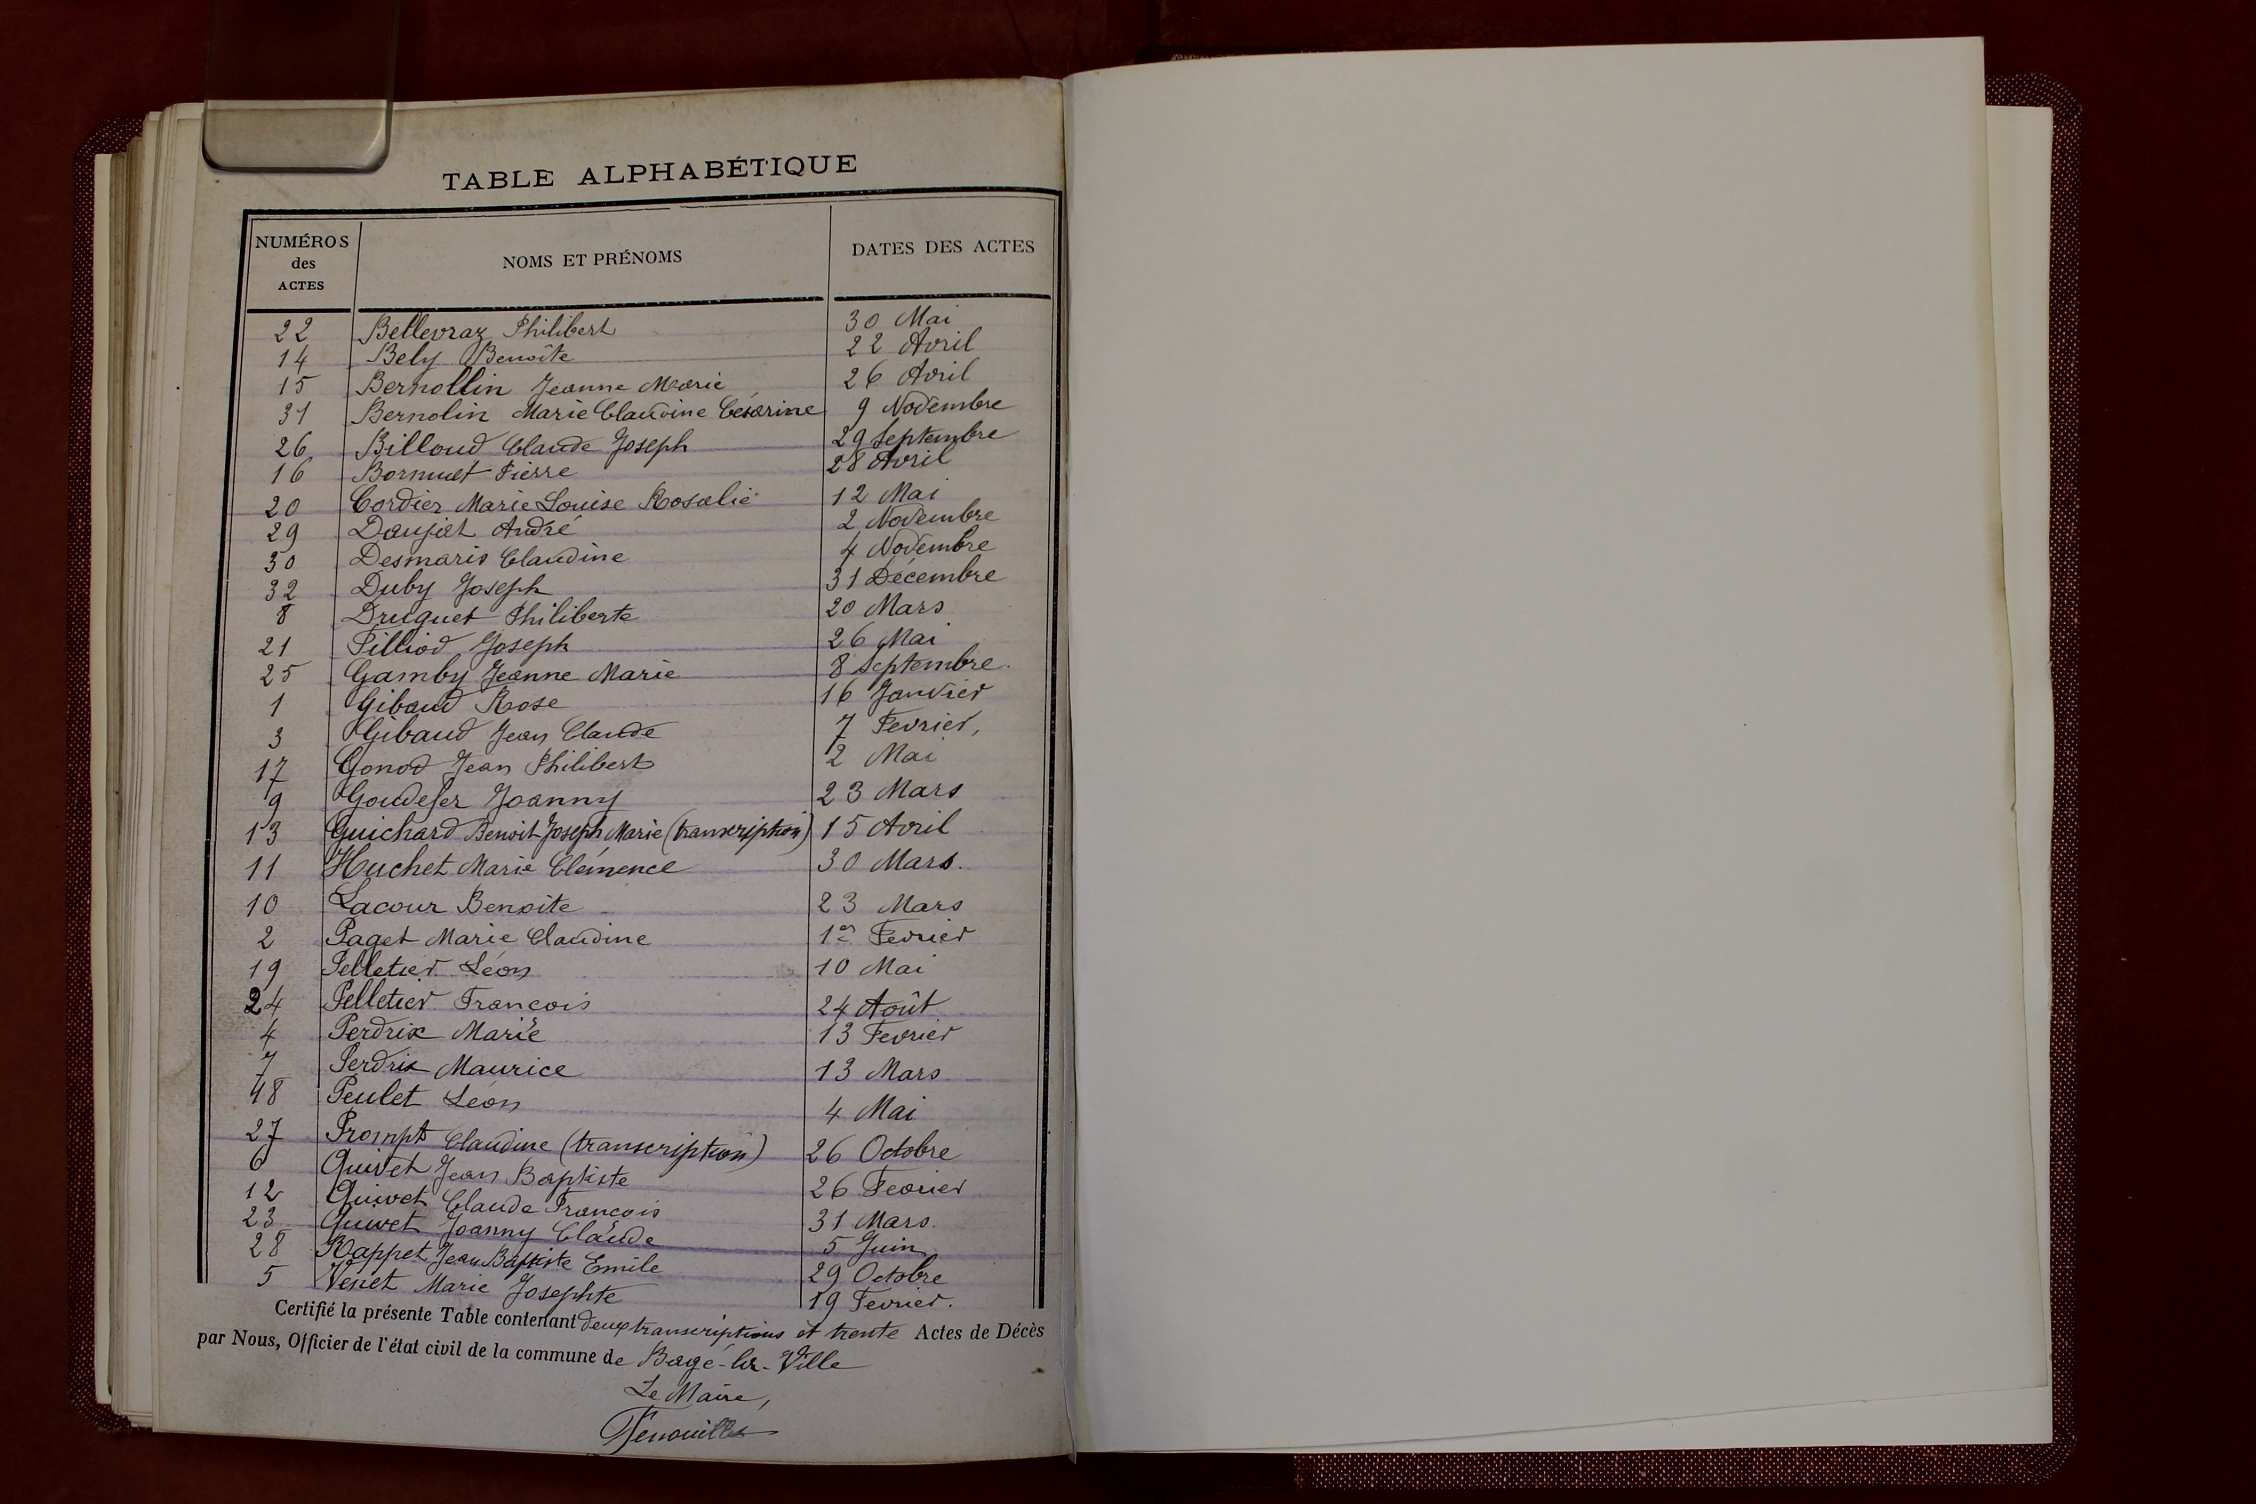 TABLE ALPHABÉTIQUE
NUMÉROS des ACTES NOMS ET PRÉNOMS DATES DES ACTES
22 Bellevraz Philibert 30 Mai
14 Bely Benoîte 22 Avril
15 Bernollin Jeanne Marie 26 Avril
31 Bernolin Marie Claudine Césarine 9 Novembre
26 Billoud Claude Joseph 29 Septembre
16 Bornuat Pierre 28 Avril
20 Cordier Marie Louise Rosalie 12 Mai
29 Daujat André 2 Novembre
30 Desmaris Claudine 4 Novembre
32 Duby Joseph 31 Décembre
8 Druguet Philiberte 20 Mars
21 Filliod Joseph 26 Mai
25 Gamby Jeanne Marie 8 Septembre.
1 Gibaud Rose 16 Janvier
3 Gibaud Jean Claude 7 Fevrier,
17 Gonod Jean Philibert 2 Mai
9 Goudefer Joanny 23 Mars
13 Guichard Benoit Joseph Marie (transcription) 15 Avril
11 Huchet Marie Clémence 30 Mars.
10 Lacour Benoite 23 Mars
2 Paget Marie Claudine 1er Fevrier
19 Pelletier Léon 10 Mai
24 Pelletier François 24 Août
4 Perdrix Marie 13 Fevrier
7 Perdrix Maurice 13 Mars
18 Peulet Léon 4 Mai
27 Prompt Claudine (transcription) 26 Octobre
6 Quivet Jean Baptiste 26 Fevrier
12 Quivet Claude François 31 Mars.
23 Quivet Joanny Claude 5 Juin
28 Rappet Jean Baptiste Emile 29 Octobre
5 Venet Marie Josephte 19 Fevrier.
Certifié la présente Table contenant deux transcriptions et trente Actes de Décès
par Nous, Officier de l'état civil de la commune de Bagé-la-Ville
Le Maire,